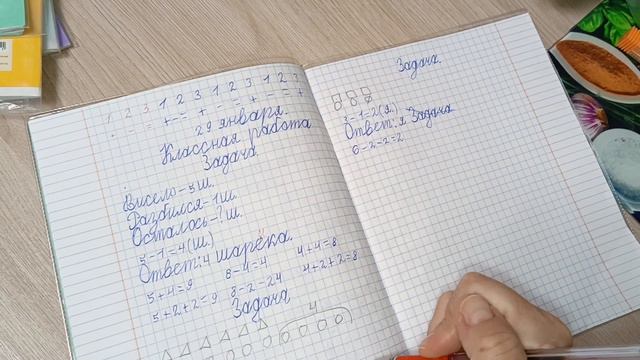 1 2 3 1 2 3 1 2 3 1 2 3
+ - = + - = + - = +
29 января.
Классная работа
Задача
Висело - 5 ш.
Разбился - 1 ш.
Осталось - ? ш.
5 - 1 = 4 (ш.)
Ответ: 4 шарёка.
5 + 4 = 9 8 - 4 = 4 4 + 4 = 8
5 + 2 + 2 = 9 8 - 2 - 2 4 4 + 2 + 2 = 8
Задача
4
Задача.
3 - 1 = 2 (я.)
Ответ: я Задача
6 - 2 - 2 = 2